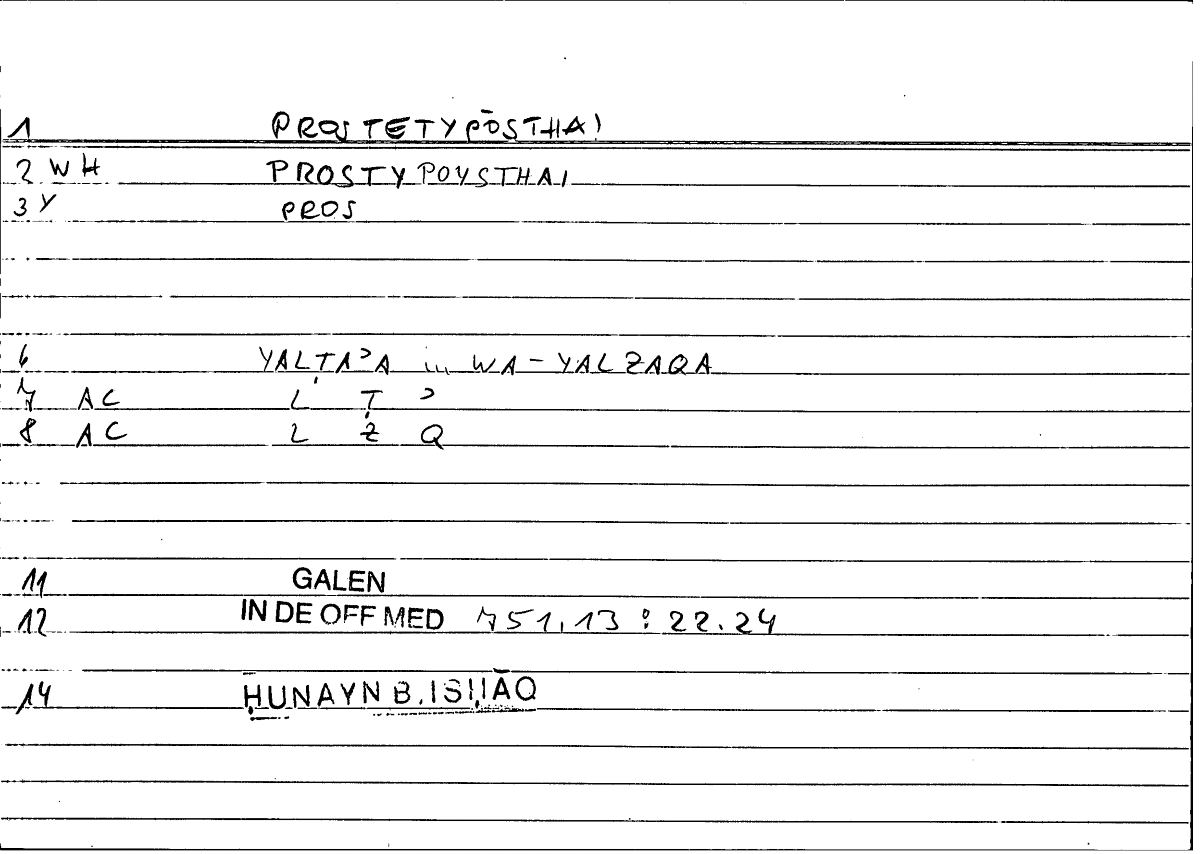 1 PROSTETYPŌSTHAI
2 WH PROSTYPOYSTHAI
3 Y PROS
6 YALṬAʾA ... WA-YALZAQA
7 AC L Ṭ ʾ
8 AC L Ż Q
11 GALEN
12 IN DE OFF MED 751,13 : 22.24
14 ḤUNAYN B. ISḤĀQ